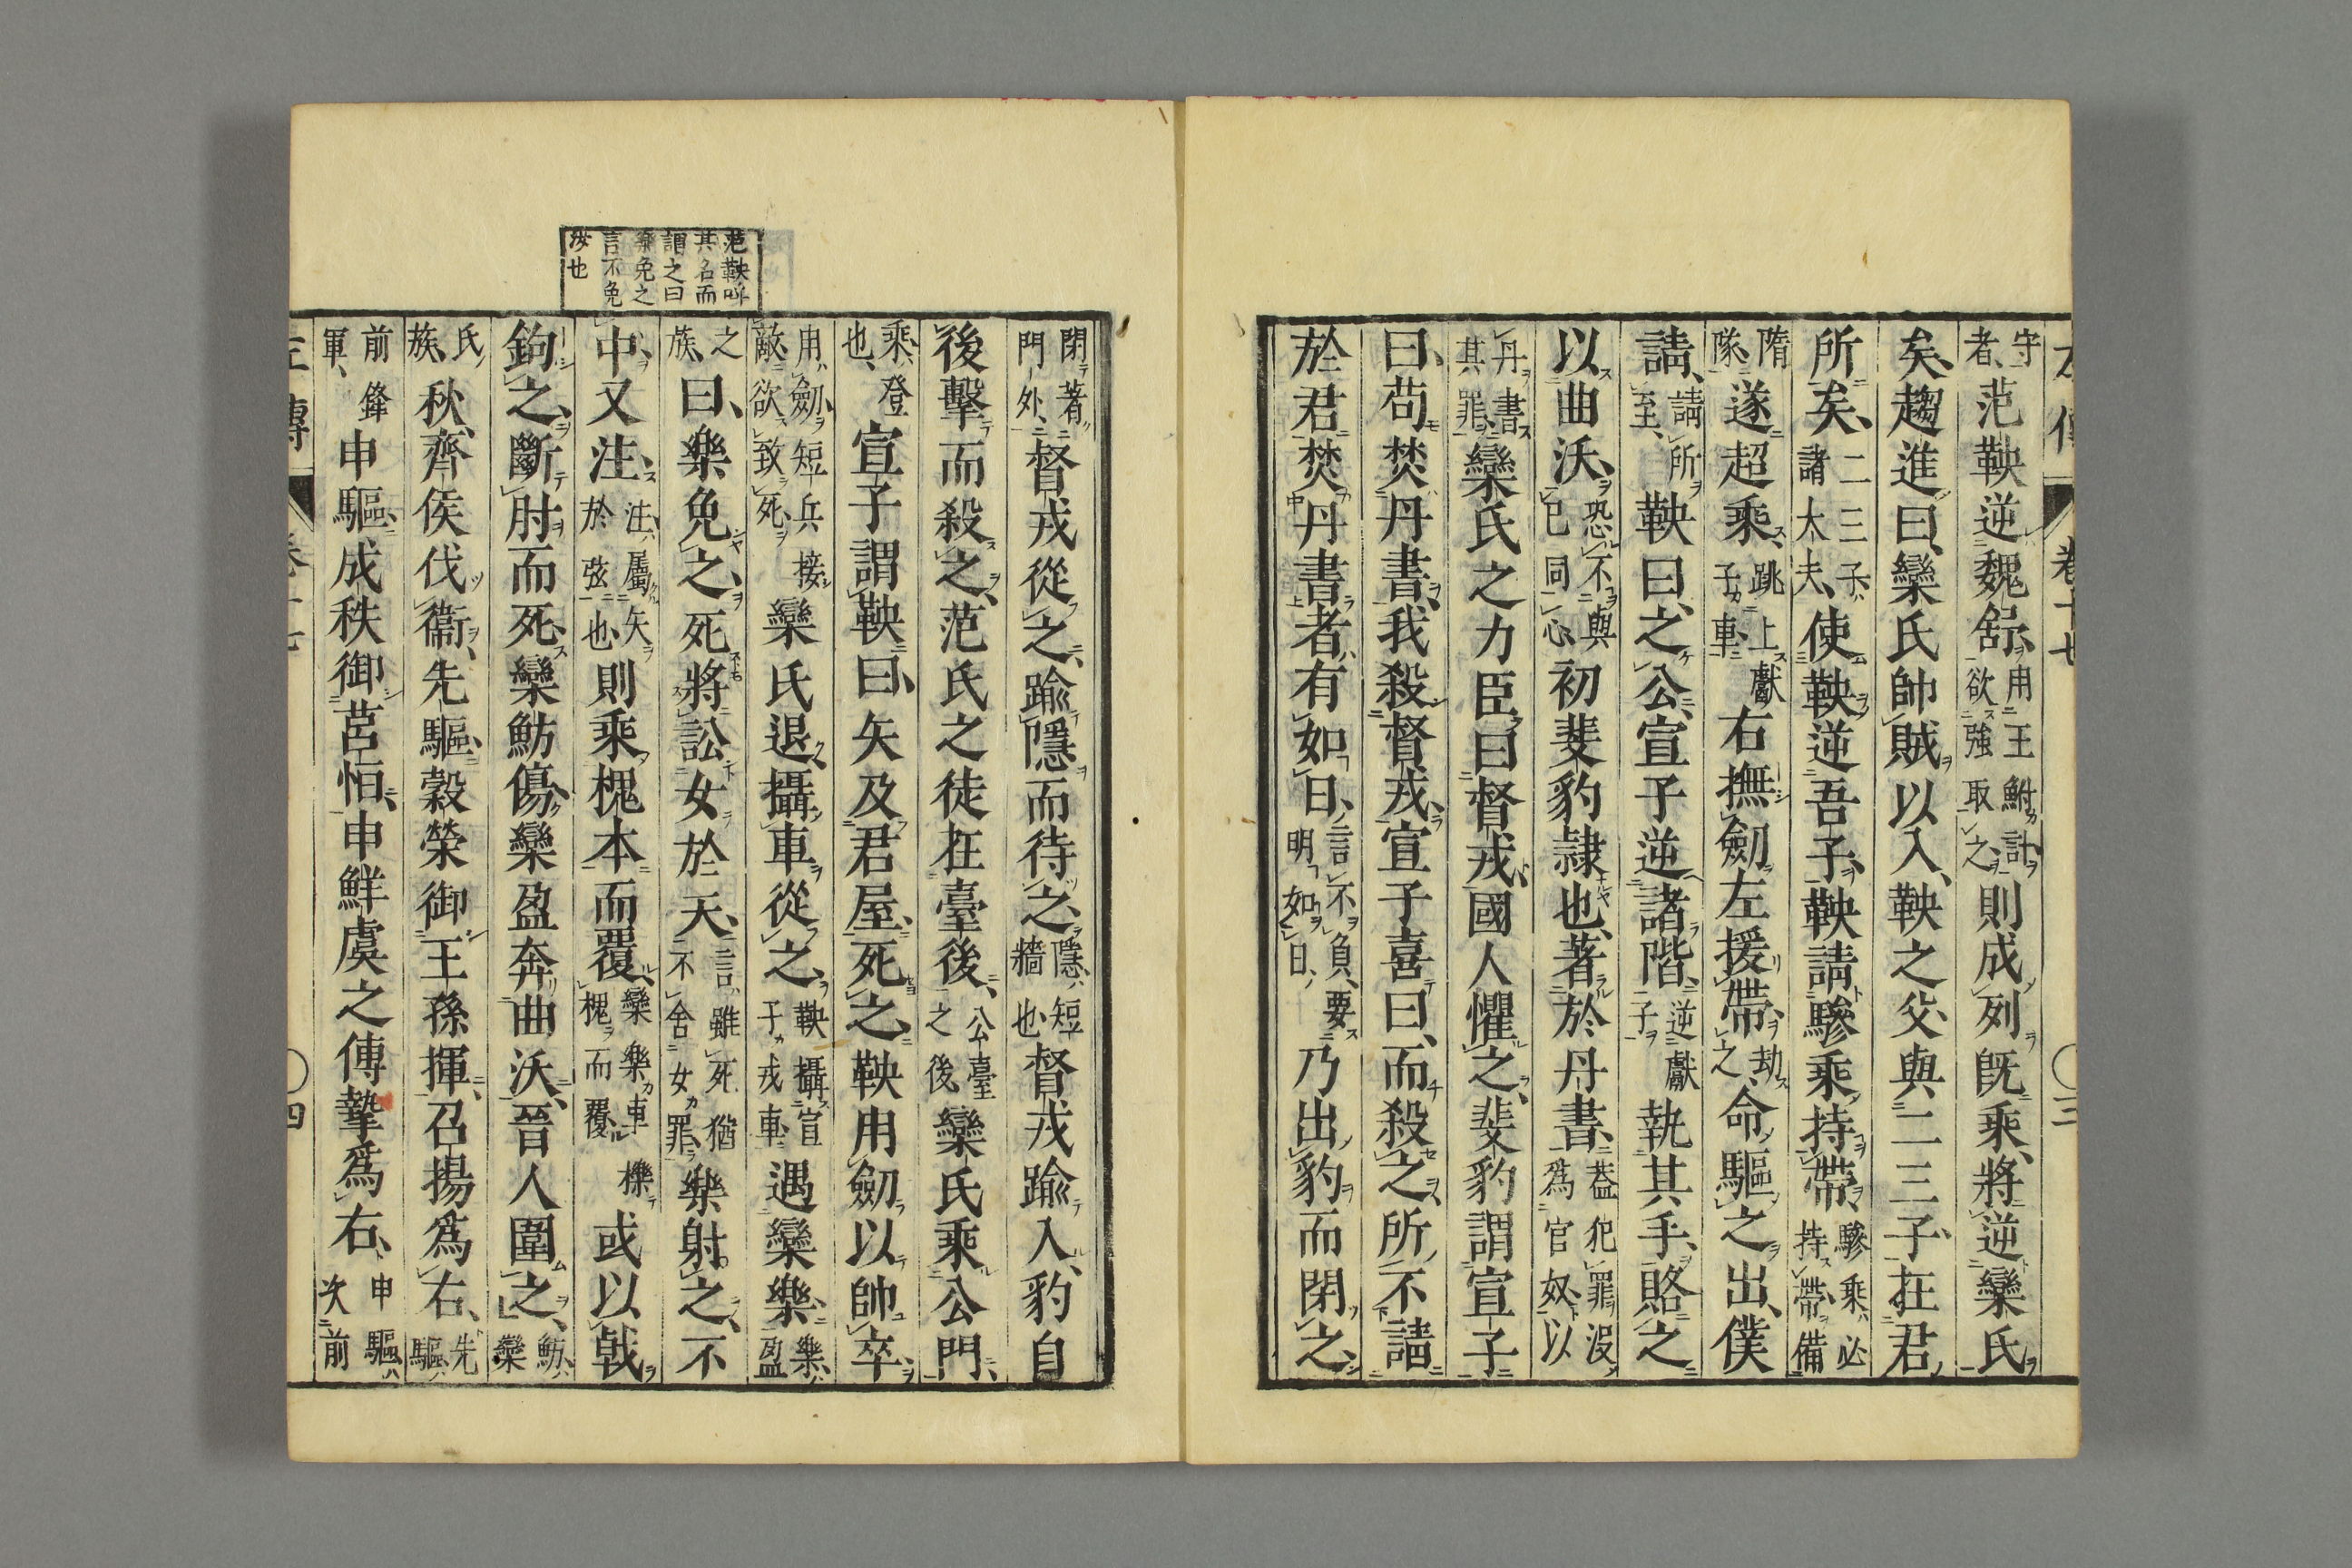 左傳 卷十七 〇三
守者、范鞅逆魏舒、用王鮒計欲強取之、則成列既乘、將逆欒氏
矣、趨進曰、欒氏帥賊以入、鞅之父與二三子在君
所矣、二三子諸大夫、使鞅逆吾子、鞅請驂乘持帶、驂乘必持帶備
隋隊、遂超乘、跳上獻子車、右撫劒左援帶、劫之、命驅之出、僕
請、請所至、鞅曰、之公、宣子逆諸階、逆獻子執其手、賂之
以曲沃、恐不與已同心、初斐豹隷也、著於丹書、葢犯罪沒爲官奴以
丹書其罪、欒氏之力臣、曰督戎、國人懼之、斐豹謂宣子
曰、苟焚丹書、我殺督戎、宣子喜曰、而殺之、所不請
於君焚丹書者、有如日、言不負要明如日、乃出豹而閉之、
閉著門外、督戎從之、踰隱而待之、隱短牆也、督戎踰入、豹自
後擊而殺之、范氏之徒在臺後、公臺之後、欒氏乘公門、
乘登也、宣子謂鞅曰、矢及君屋、死之、鞅用劒以帥卒、
用劒短兵接敵欲致死、欒氏退、攝車從之、鞅攝宣子戎車、遇欒樂、樂盈
之族、曰、樂免之、死將訟女於天、言雖死猶不舍女罪、樂射之、不
中、又注、注屬矢於弦也、則乘槐本而覆、欒樂車櫟槐而覆、或以戟
鉤之、斷肘而死、欒魴傷、欒盈奔曲沃、晉人圍之、魴欒
氏族、秋、齊侯伐衞、先驅、穀榮御王孫揮、召揚爲右、先驅
前鋒軍、申驅、成秩御莒恒、申鮮虞之傅摯爲右、申驅次前
范鞅呼
其名而
謂之曰
樂免之
言不免
汝也
左傳 卷十七 〇四